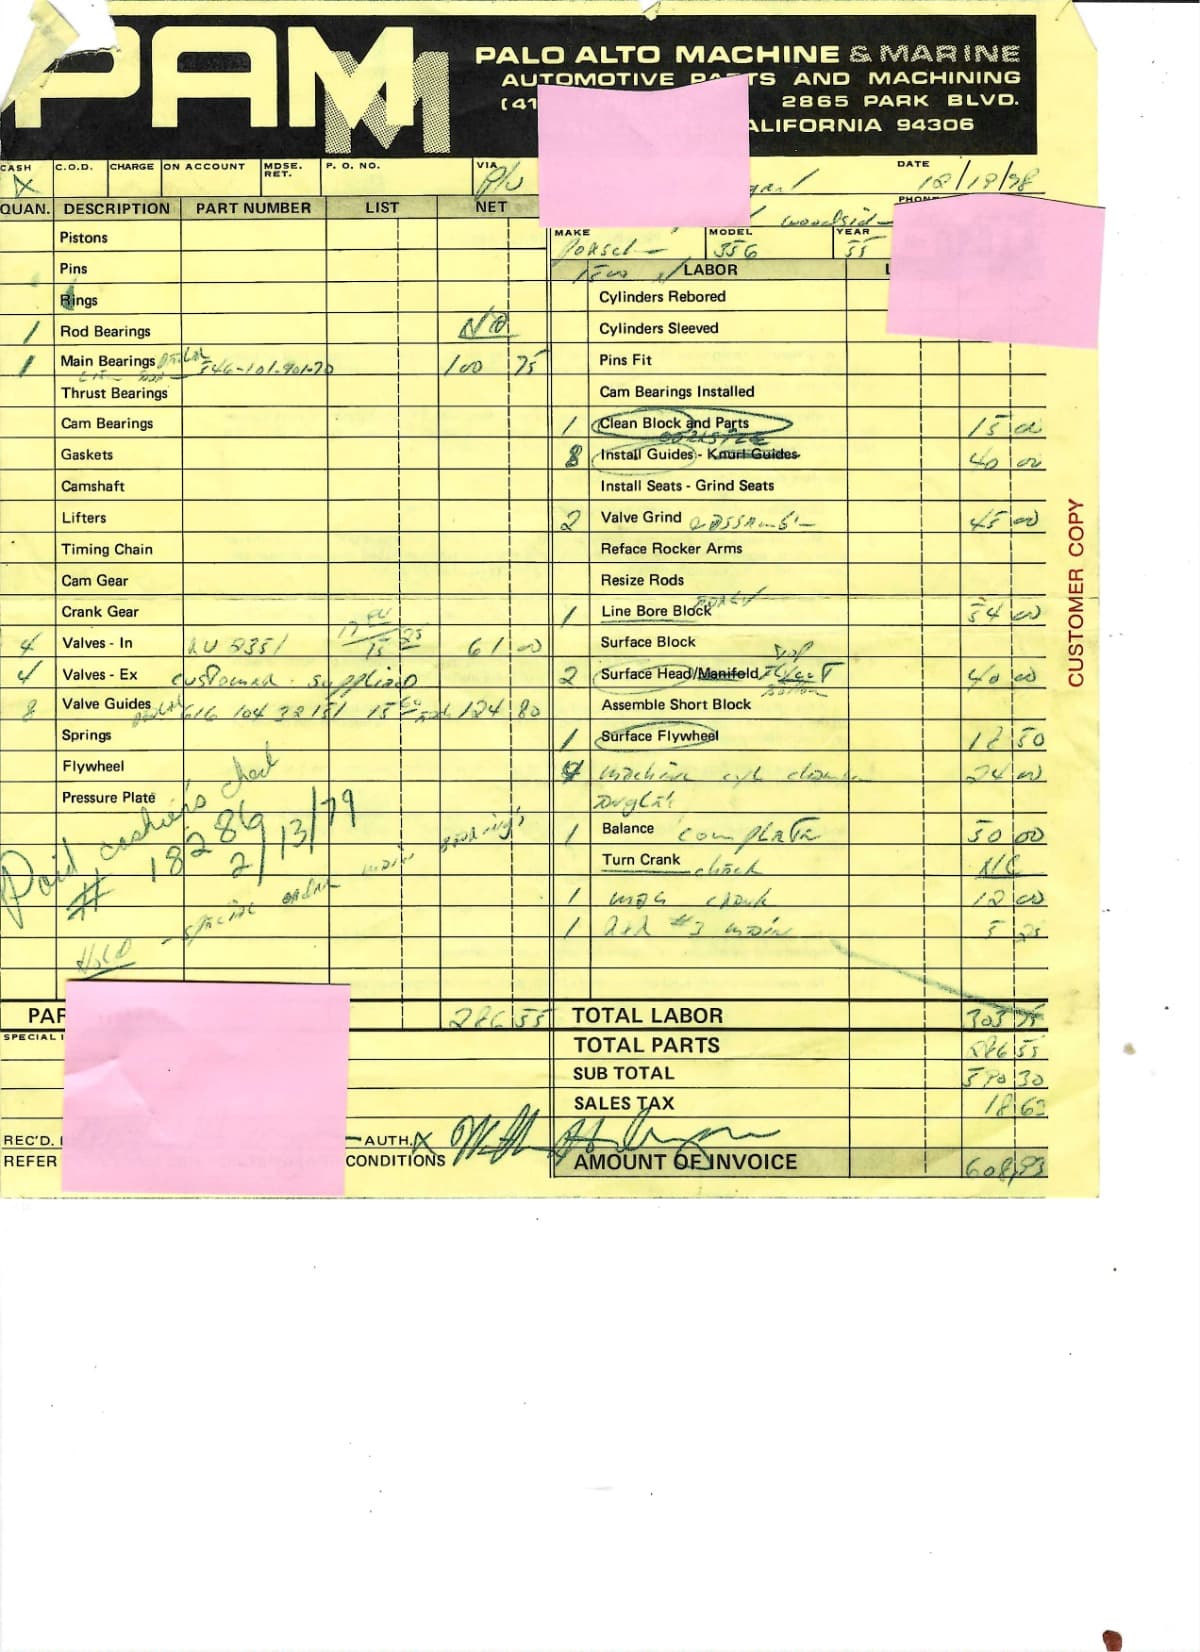 PAM
M
PALO ALTO MACHINE & MARINE
AUTOMOTIVE P TS AND MACHINING
(41 2865 PARK BLVD.
ALIFORNIA 94306
CASH C.O.D. CHARGE ON ACCOUNT MDSE. RET. P. O. NO. VIA DATE
X P/U 12/18/78
PHONE
Woodside
QUAN. DESCRIPTION PART NUMBER LIST NET
MAKE MODEL YEAR
Porsche 356 55
1500 LABOR L
Pistons
Pins
Rings
1 Rod Bearings
1 Main Bearings 546-101-901-70 100 75
Thrust Bearings
Cam Bearings
Gaskets
Camshaft
Lifters
Timing Chain
Cam Gear
Crank Gear
4 Valves - In 2351 61 00
4 Valves - Ex customer supplied
8 Valve Guides 616 104 32151 15 60 124 80
Springs
Flywheel
Pressure Plate
Paid cashier's check
# 18286
2/13/79
special order main bearings
Hold
PAR 286 55
SPECIAL I
REC'D.
REFER
AUTH. X
CONDITIONS
Cylinders Rebored
Cylinders Sleeved
Pins Fit
Cam Bearings Installed
1 Clean Block and Parts 15 00
8 Install Guides - Knurl Guides 40 00
Install Seats - Grind Seats
2 Valve Grind assemble 45 00
Reface Rocker Arms
Resize Rods
1 Line Bore Block 54 00
Surface Block
2 Surface Head/Manifold 40 00
Assemble Short Block
1 Surface Flywheel 18 50
4 machine cyl chamber 24 00
1 Balance complete 50 00
Turn Crank check N/C
1 mag crank 12 00
1 #3 main 5 25
TOTAL LABOR 303 75
TOTAL PARTS 286 55
SUB TOTAL 590 30
SALES TAX 18 63
AMOUNT OF INVOICE 608 93
CUSTOMER COPY